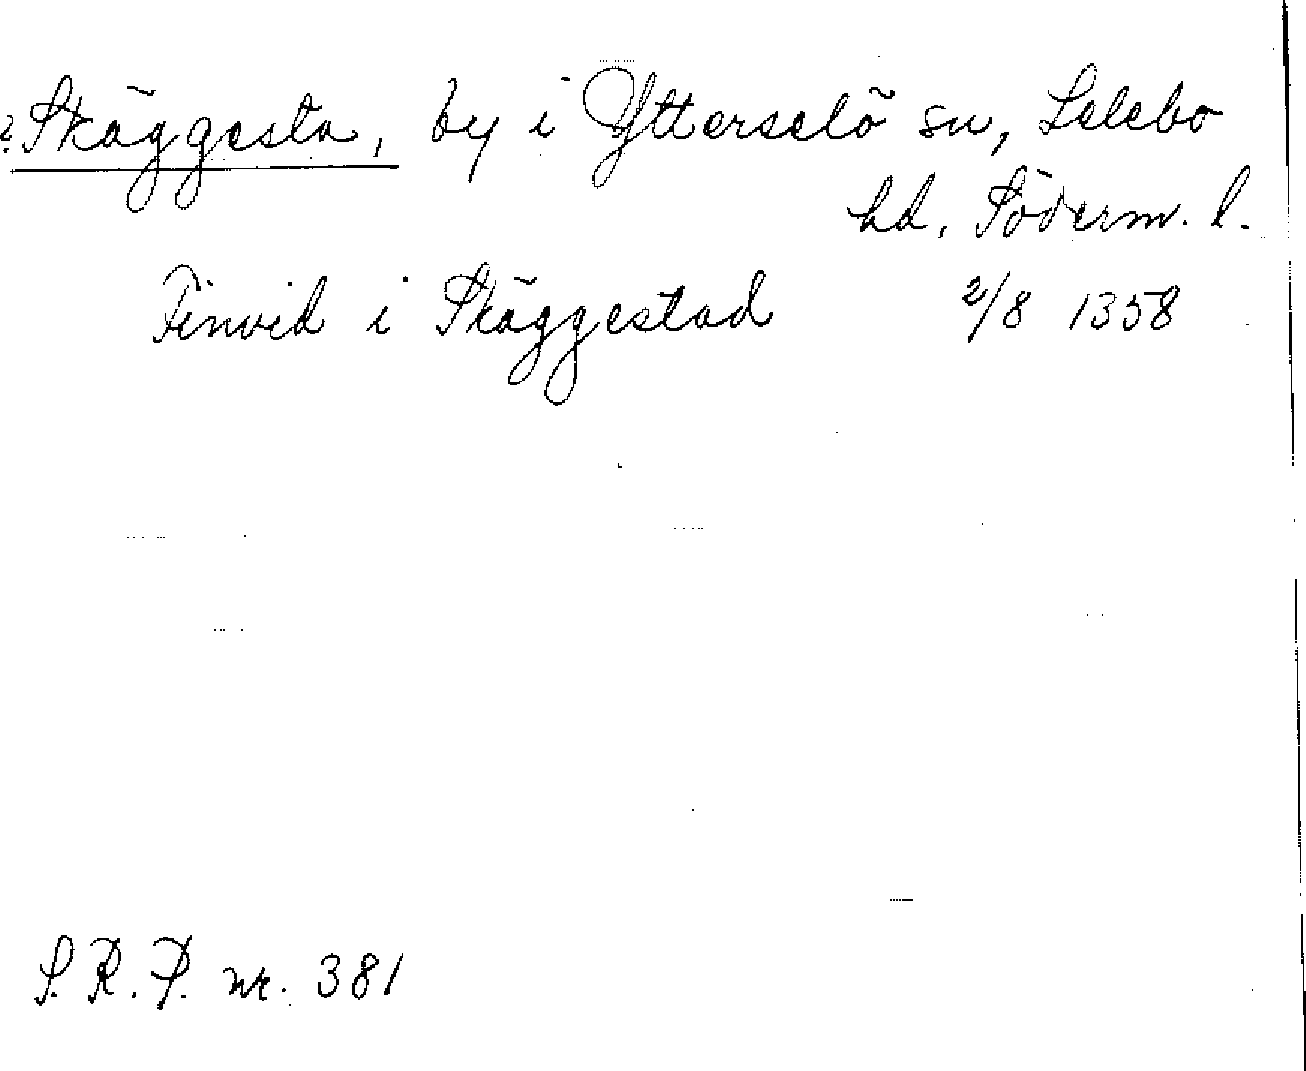 ? Skäggesta, by i Ytterselö sn, Selebo
hd, Söderm. l.
Finvid i Skäggestad 2/8 1358
S. R. P. nr. 381